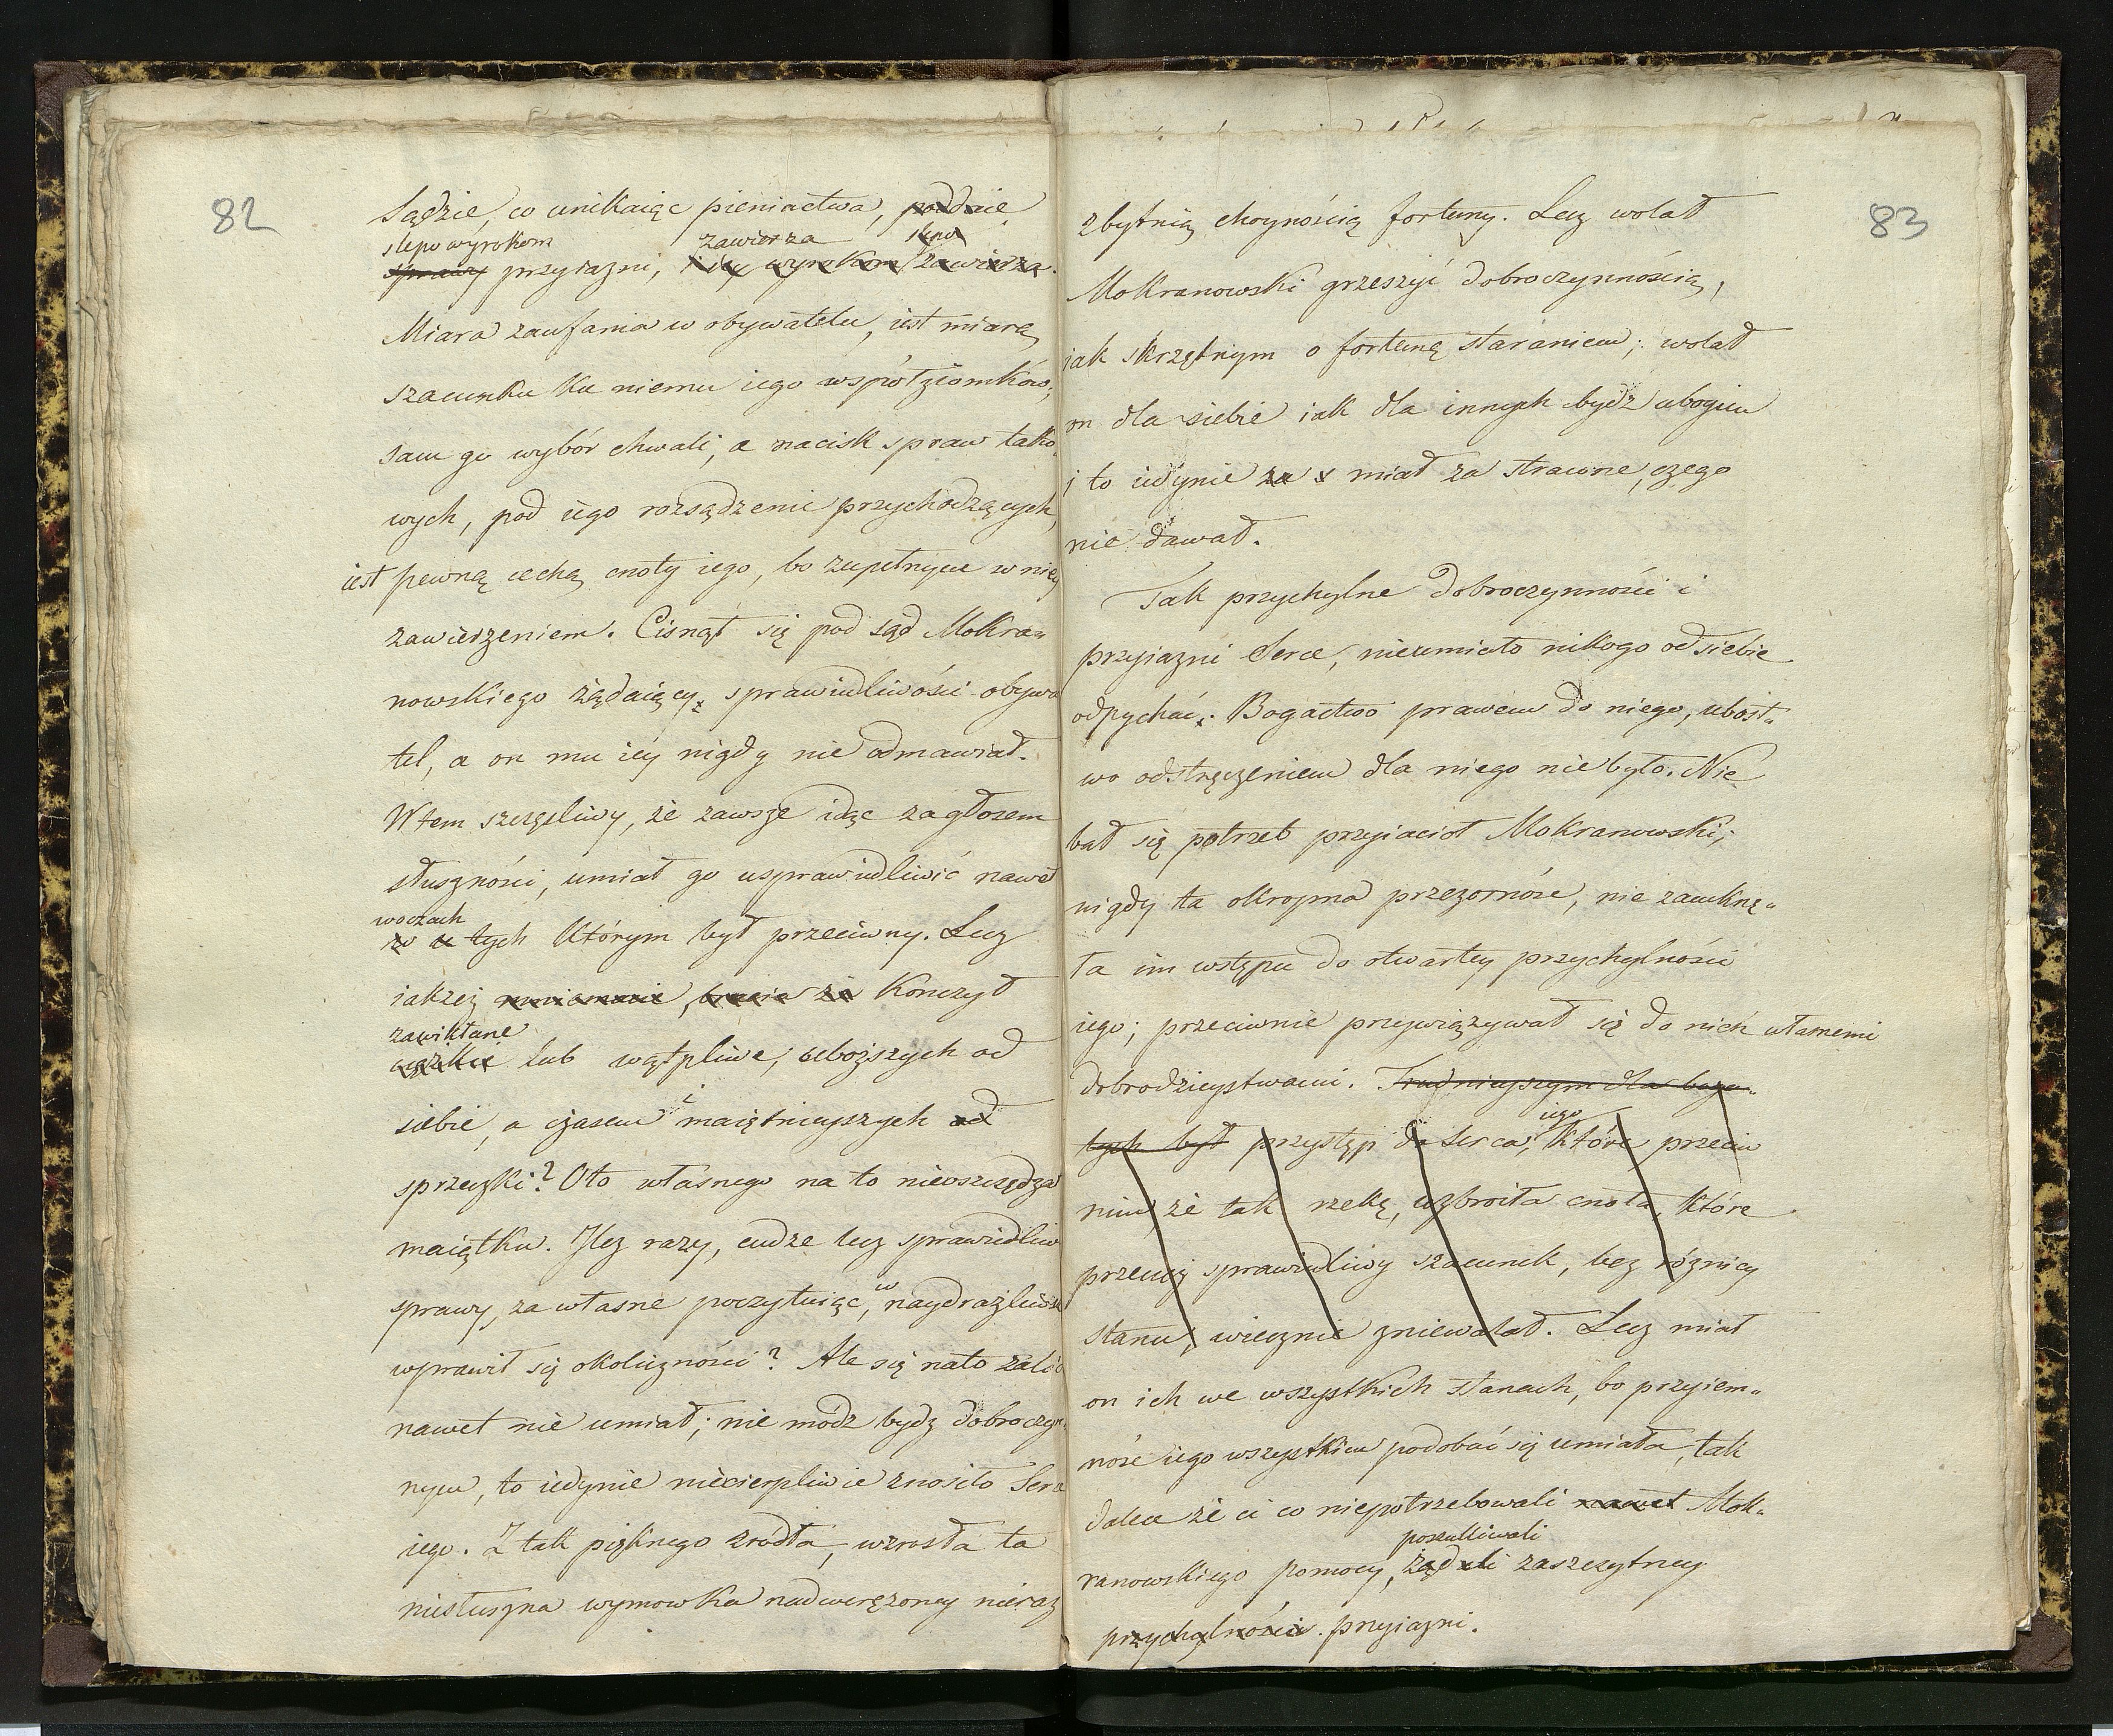 82
Sądzie, co unikaiąc pieniactwa, poddaie
slepo wyrokom zawierza slepo
sprawy przyiazni, i iey wyrokom zawierza.
Miara zaufania w obywatelu, iest miarą
szacunku ku niemu iego współziomków;
sam go wybór chwali, a nacisk spraw tako„
wych, pod iego rozsądzenie przychodzących,
iest pewną cechą cnoty iego, bo zupełnym w niey
zawierzeniem. Cisnął się pod sąd Mokra„
nowskiego żądaiący sprawiedliwości obywa
tel, a on mu iey nigdy nie odmawiał.
W tem szczęśliwy, że zawsze idąc za głosem
słuszności, umiał go usprawiedliwić nawet
w oczach
w u tych którym był przeciwny. Lecz
iakżeż mniemanie, bracia za kończył
zawikłane
ciężkie lub wątpliwe, uboższych od
siebie, a czasem i maiętnieyszych od
sprzeczki? Oto własnego na to nieoszczędzał
maiątku. Ileż razy, cudze lecz sprawiedliwe
sprawy, za własne poczytuiąc, w naydrażliwsze
wprawił się okoliczności? Ale się na to żalić
nawet nie umiał; nie módz bydz dobroczyn„
nym, to iedynie niecierpliwie znosiło Serce
iego. Z tak pięknego źródła, wzrosła ta
niesłuszna wymowka nadwerężoney nieraz
83
zbytnią choynością fortuny. Lecz wolał
Mokranowski grzeszyć dobroczynnością,
iak skrzętnym o fortunę staraniem; wolał
on dla siebie iak dla innych bydź ubogim
i to iedynie za s miał za strawne, czego
nie dawał.
Tak przychylne dobroczynności i
przyiazni Serce, nieumiało nikogo od siebie
odpychać. Bogactwo prawem do niego, ubóst„
wo odstręczeniem dla niego nie było. Nie
bał się potrzeb przyiacioł Mokranowski;
nigdy ta okropna przezorność, nie zamknę„
ła im wstępu do otwartey przychylności
iego; przeciwnie przywiązywał się do nich własnemi
dobrodzieystwami. Trudnieyszym dla boga„
tych był przystęp do Serca, iego które przeciw
nim, że tak rzekę, uzbroiła cnota, które
przeciey sprawiedliwy szacunek, bez różnicy
stanu, wiecznie zniewalał. Lecz miał
on ich we wszystkich stanach, bo przyiem„
ność iego wszystkim podobać się umiała, tak
dalece że ci co niepotrzebowali nawet Mok„
poszukiwali
ranowskiego pomocy, żądali zaszczytney
przychylności. przyiazni.